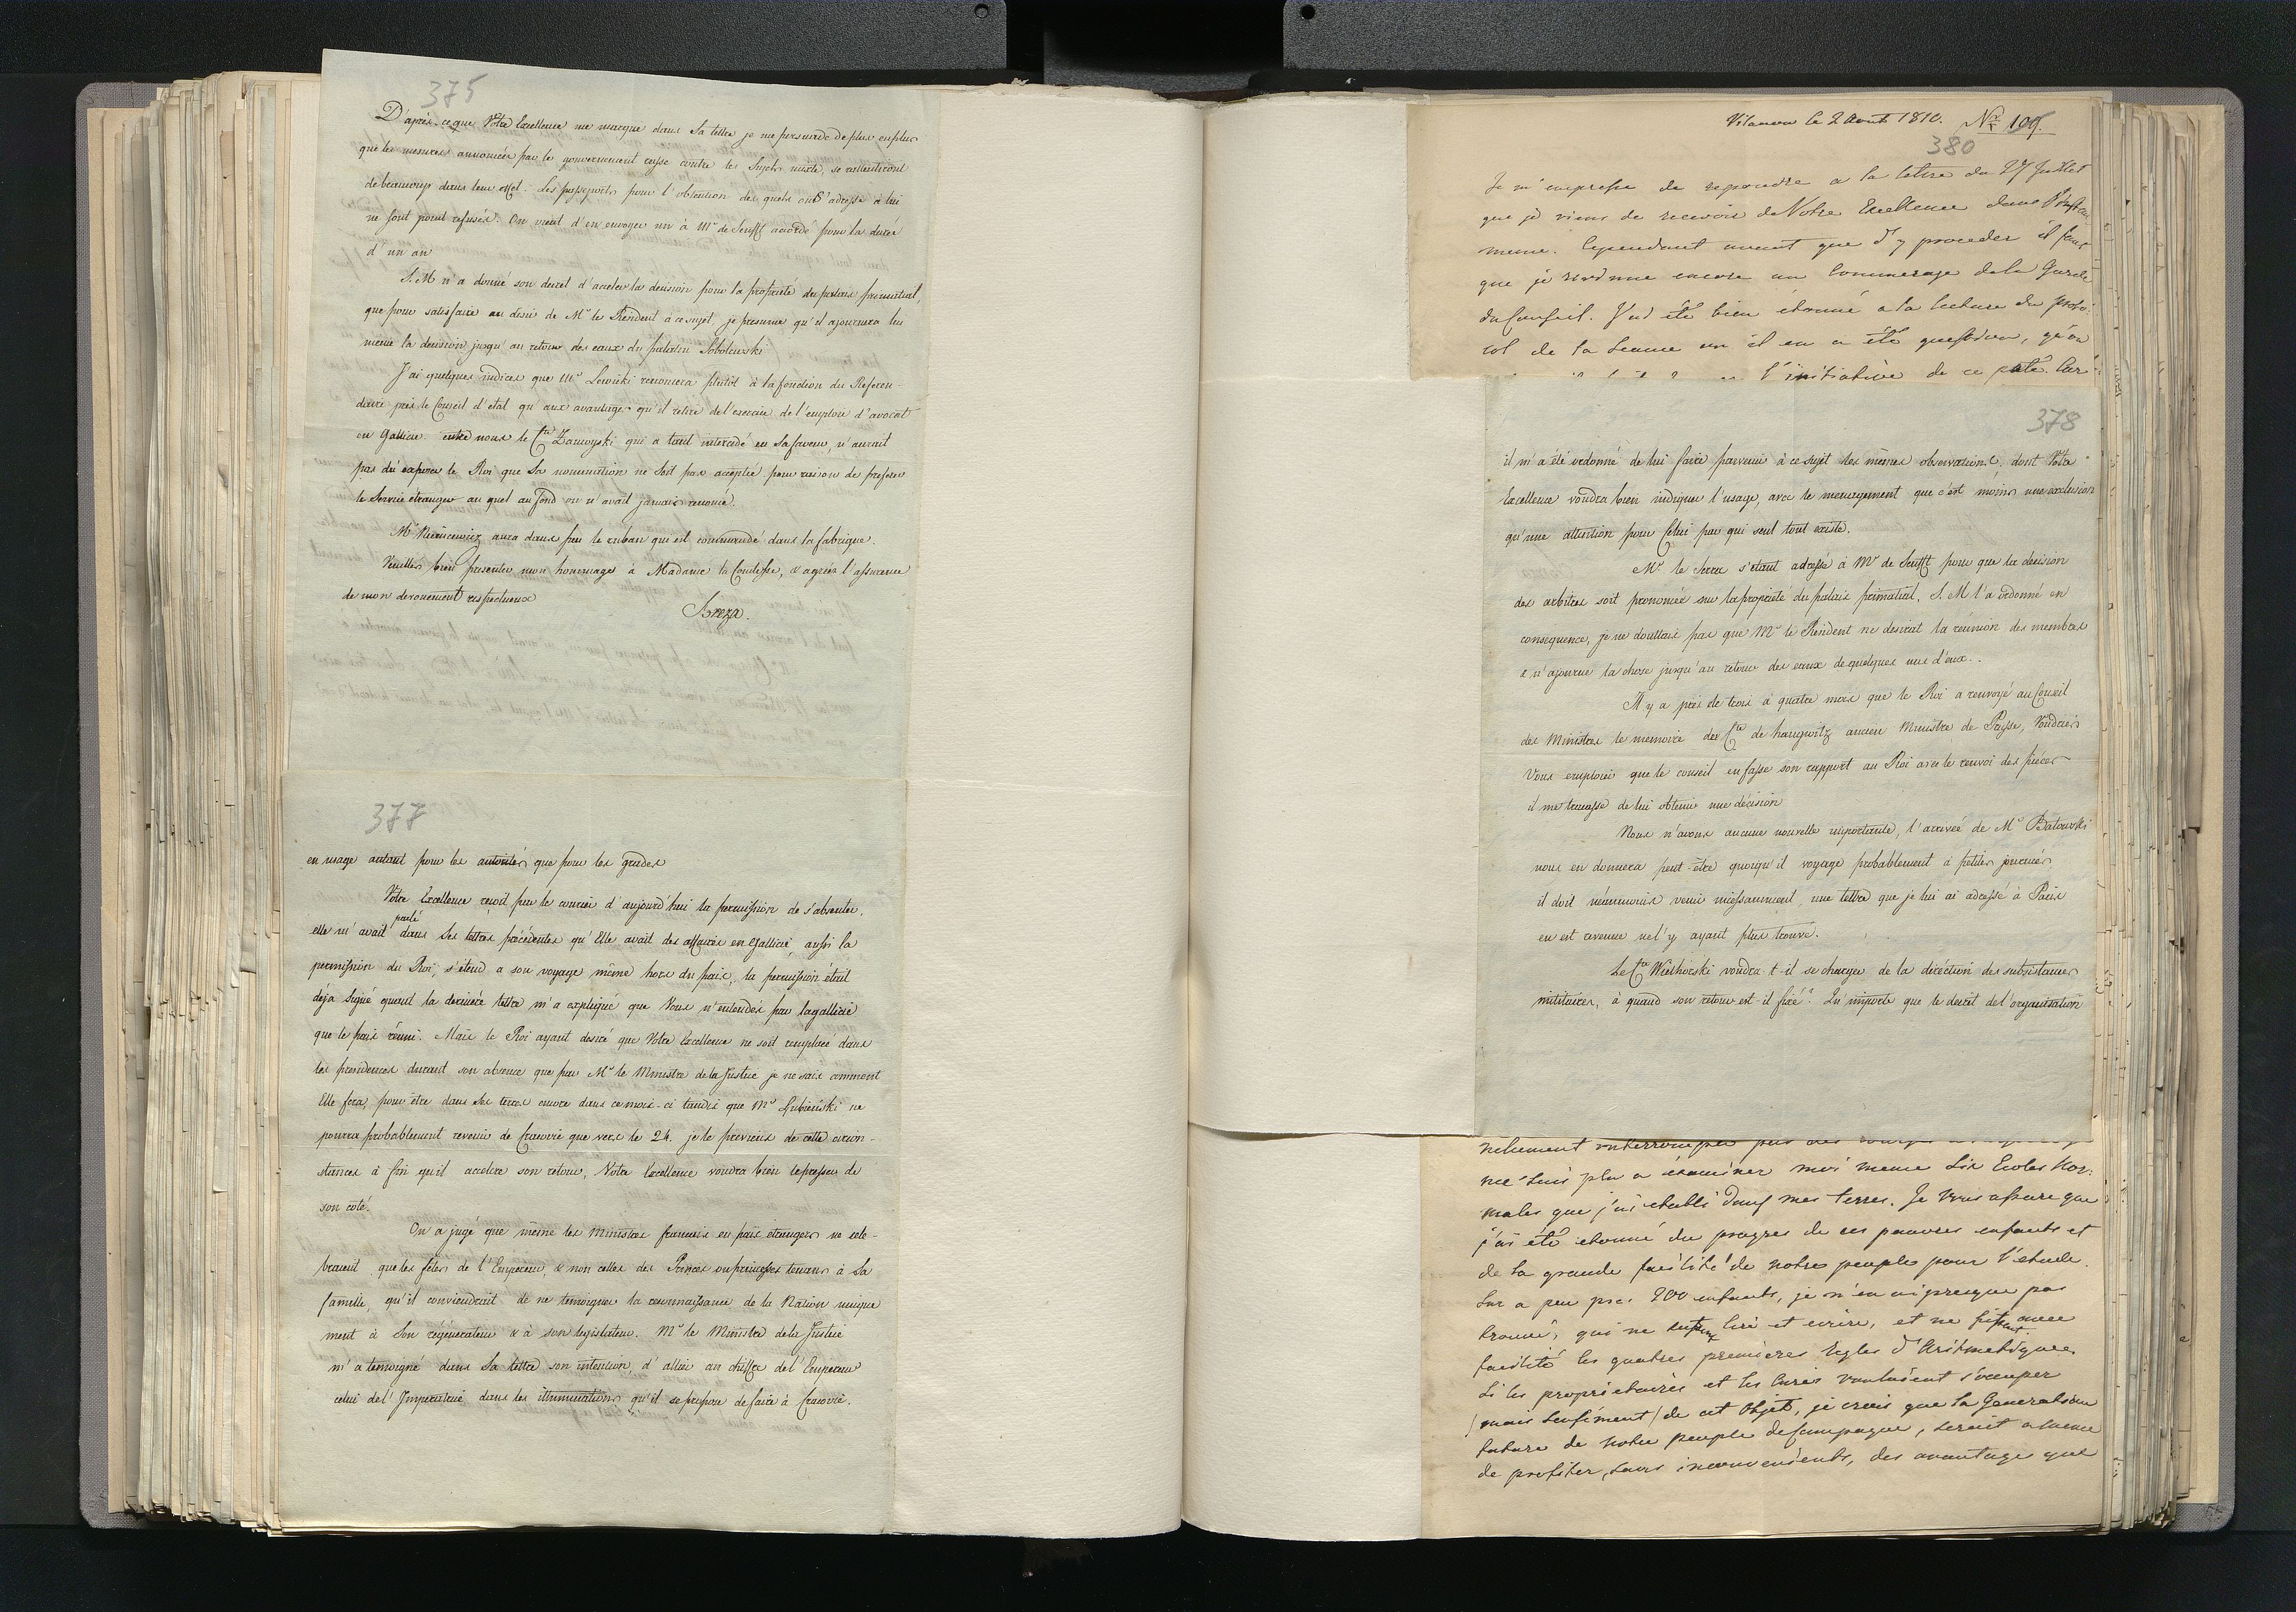 375
D'après ce que Votre Excellence me marque dans Sa lettre je me persuade de plus en plus
que les mesures annoncées par le gouvernement russe contre les Sujets mixte, se rallentiront
de beaucoup dans leur effet. Les passeports pour l'obtention des quels on S'adresse à lui
ne sont point refusés. On vient d'en envoyer un à Mr de Senfft accordé pour la durée
d'un an
S. M n'a donné son decret d'acceler la decision pour la propriété du palais primatial,
que pour satisfaire au desir de Mr le Resident à ce sujet, je presume qu'il ajournera lui
même la decision jusqu'au retour des eaux du palatin Sobolewski
J'ai quelques indices que Mr Lewicki renoncera plutôt à la fonction du Referen-
daire près le Conseil d'etat qu'aux avantages qu'il retire de l'exercice de l'emploie d'avocat
en Gallicie. entre nous le Cte Zamoyski qui a tant intercedé en Sa faveur, n'aurait
pas dû exposer le Roi que Sa nomination ne Soit pas acceptée pour raison de preferer
le Service étranger au quel au fond on n'avait jamais renoncé.
Mr Niemcewicz aura dans peu le ruban qui est commandé dans la fabrique.
Veuillés bien presenter mon hommage à Madame la Comtesse, & agréer l'assurance
de mon devouement respectueux
Breza.
377
en usage autant pour les autorités que pour les grades
Votre Excellence reçoit par le courier d'aujourd'hui la permission de s'absenter.
parlé
elle m'avait dans Ses lettres précédentes qu'Elle avait des affaires en Gallicie, aussi la
permission du Roi, s'étend a son voyage même hors du païs, la permission était
déja Signé quand la dernière lettre m'a expliqué que Vous n'entendés par la gallicie
que le païs réuni. Mais le Roi ayant desiré que Votre Excellence ne soit remplacé dans
les presidences durant son absence que par Mr le Ministre de la Justice je ne sais comment
Elle fera, pour être dans Ses terres encore dans ce mois-ci tandis que Mr Lubieński ne
pourra probablement revenir de Cracovie que vers le 24. je le previens de cette circon-
stances à fin qu'il accelere son retour, Votre Excellence voudra bien le presser de
son coté.
On a jugé que même les Ministres francais en païs etrangers ne cele-
braient que les fêtes de l'Empereur, & non celles des Princes ou princesses tenans à Sa
famille, qu'il conviendrait de ne temoigner la reconnaissance de la Nation unique
ment à Son régénerateur & à son legislateur. Mr le Ministre de la Justice
m'a temoigné dans Sa lettre son intention, d'allier au chiffre de l'Empereur
celui de l'Imperatrice dans les illuminations qu'il se propose de faire à Cracovie.
Vilanow le 2 Aout 1810. Nr 109.
380
Je m'empresse de repondre a la lettre du 27 Juillet
que je viens de recevoir de Votre Excellence dans l'instan
meme. Cependant avant que d'y proceder il faut
que je vous donne encore un Commerage de la Garde
du Conseil. J'ai été bien étonné a la lecture du proto-
col de la Seance ou il en a été question, qu'on
l'initiative de ce coté. Car
378
il m'a été ordonné de lui faire parvenir à ce sujet les mêmes observations, dont Votre
Excellence voudra bien indiquer l'usage, avec le menagement que c'est moins une exclusion
qu'une attention pour Celui par qui seul tout existe.
Mr le Serra s'etant adressé à Mr de Senfft pour que la decision
des arbitres soit prononcée sur la propriété du palais primatial, S. M l'a ordonné en
consequence, je ne douttais pas que Mr le Resident ne desirat la réunion des membres
& n'ajourne la chose jusqu'au retour des eaux de quelques uns d'eux..
Il y a près de trois à quatre mois que le Roi a renvoyé au Conseil
des Ministres le memoire du Cte de haugwitz ancien Ministre de Prusse, Voudriés
Vous emploier que le conseil en fasse son rapport au Roi avec le renvoi des pièces
il me tracasse de lui obtenir une décision
Nous n'avons aucune nouvelle importante, l'arrivée de Mr Batowski
nous en donnera peut-être quoiqu'il voyage probablement à petites journées
il doit néanmoins venir incessamment, une lettre que je lui ai adressé à Paris
en est revenue ne l'y ayant plus trouvé.
Le Cte Wielhorski voudra-t-il se charger de la diréction des subsistances
militaires, à quand son retour est-il fixé? Qu'importe que le decret de l'organisation
nellement interrompu par des
me suis plu a éxaminer moi meme Six Ecoles Nor-
males que j'ai etabli dans mes terres. Je Vous assure que
j'ai été etonné du progres de ces pauvres enfants et
de la grande facilité de notre peuple pour l'etude.
Sur a peu pres 200 enfants, je n'en ai presque pas
trouvé, qui ne sussent lire et ecrire, et ne fissent avec
facilité les quatres premieres regles d'Aritmetique.
Si les proprietaires et les Curés voulaient s'occuper
(mais Sensément) de cet Objet, je crois que la Generation
future de notre peuple de Campagne, seroit a meme
de profiter, sans inconvenients, des avantages que